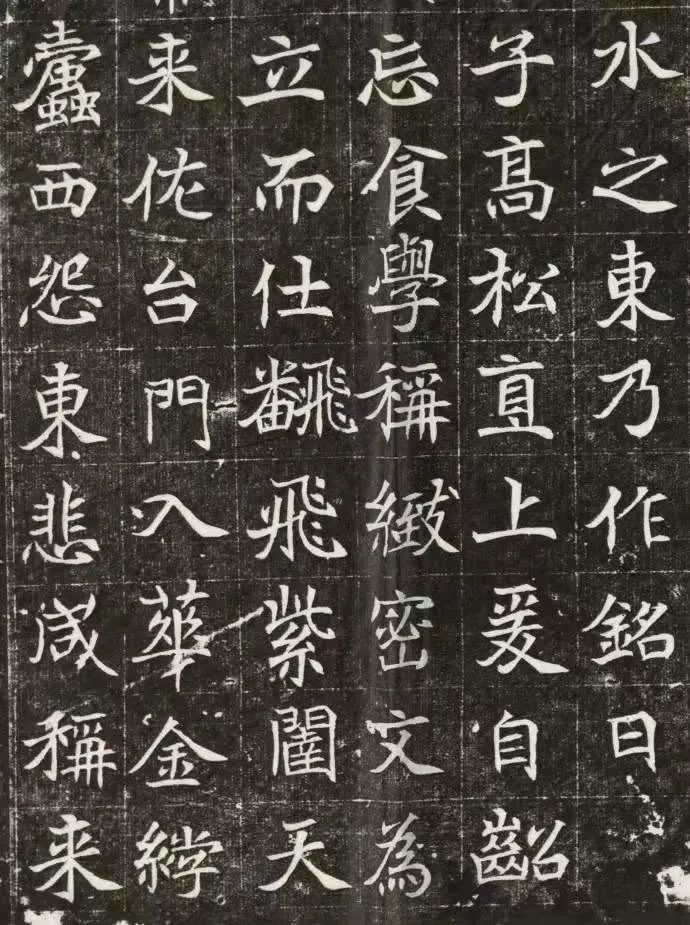 水之東乃作銘曰
子髙松直上爰自齠
忘食學稱緻密文為
立而仕飜飛紫闥天
来佐台門入華金綍
蠹西怨東悲咸稱来